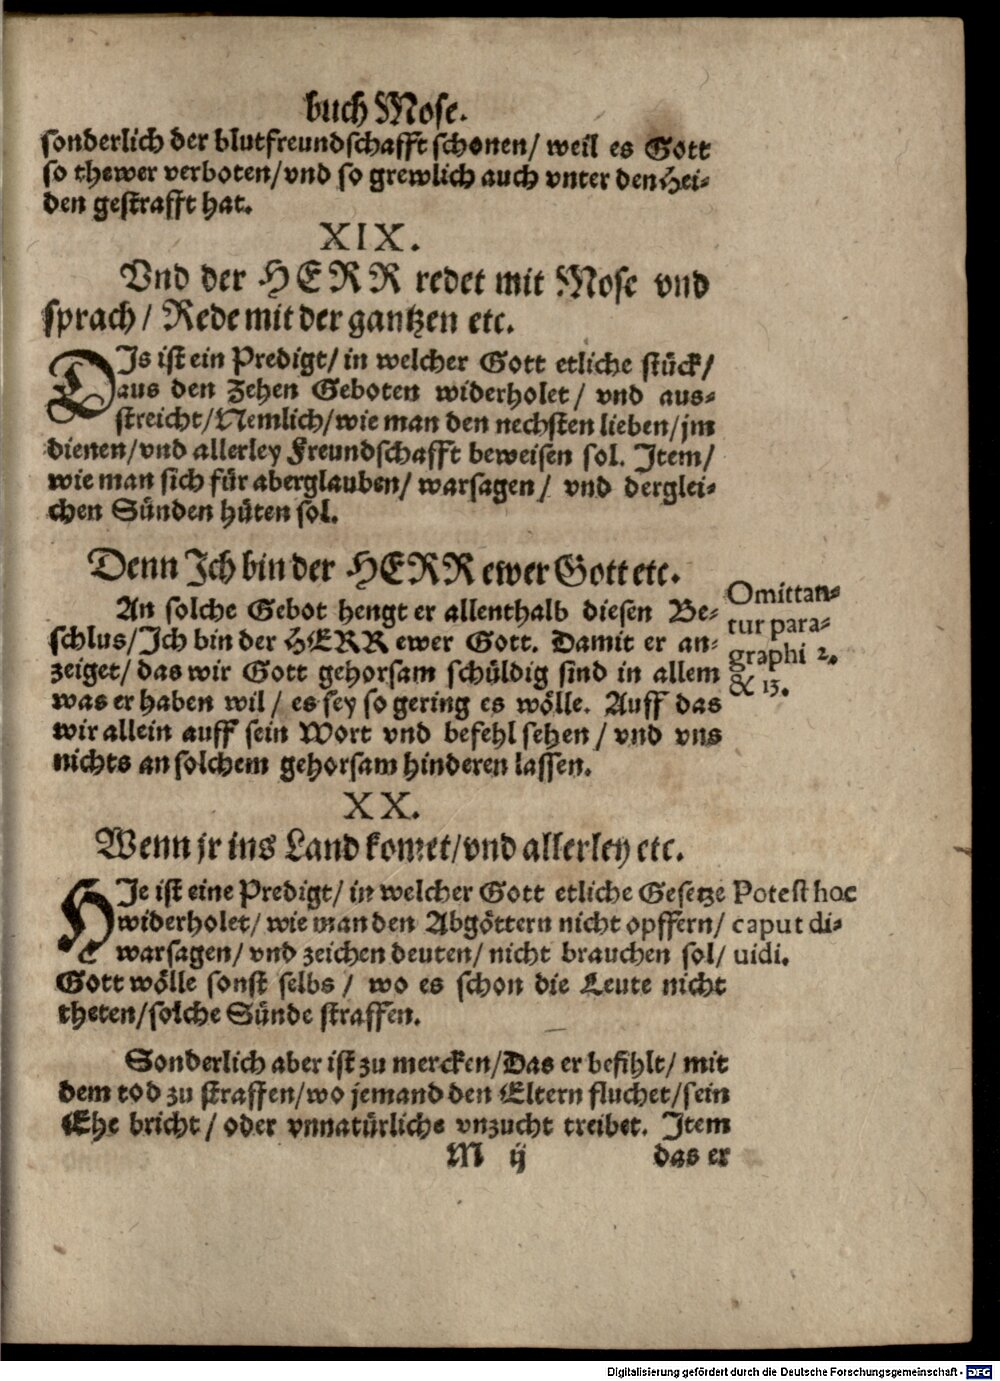 buch Mose.
sonderlich der blutfreundschafft schonen/ weil es Gott
so thewer verboten/vnd so grewlich auch vnter den Hei-
den gestrafft hat.
XIX.
Vnd der HERR redet mit Mose vnd
sprach/ Rede mit der gantzen etc.
DJs ist ein Predigt/ in welcher Gott etliche stück/
aus den Zehen Geboten widerholet/ vnd aus-
streicht/Nemlich/wie man den nechsten lieben/jm
dienen/vnd allerley Freundschafft beweisen sol. Jtem/
wie man sich für aberglauben/ warsagen/ vnd derglei-
chen Sünden hüten sol.
Denn Jch bin der HERR ewer Gott etc.
An solche Gebot hengt er allenthalb diesen Be-
schlus/Jch bin der HERR ewer Gott. Damit er an-
zeiget/ das wir Gott gehorsam schüldig sind in allem
was er haben wil/ es sey so gering es wölle. Auff das
wir allein auff sein Wort vnd befehl sehen/ vnd vns
nichts an solchem gehorsam hinderen lassen.
Omittan-
tur para-
graphi 2.
& 13.
XX.
Wenn jr ins Land komet/vnd allerley etc.
HJe ist eine Predigt/ in welcher Gott etliche Gesetze
widerholet/ wie man den Abgöttern nicht opffern/
warsagen/ vnd zeichen deuten/ nicht brauchen sol/
Gott wölle sonst selbs/ wo es schon die Leute nicht
theten/solche Sünde straffen.
Potest hoc
caput di-
uidi.
Sonderlich aber ist zu mercken/Das er befihlt/ mit
dem tod zu straffen/wo jemand den Eltern fluchet/sein
Ehe bricht/ oder vnnatürliche vnzucht treibet. Jtem
M ij das er
Digitalisierung gefördert durch die Deutsche Forschungsgemeinschaft - DFG